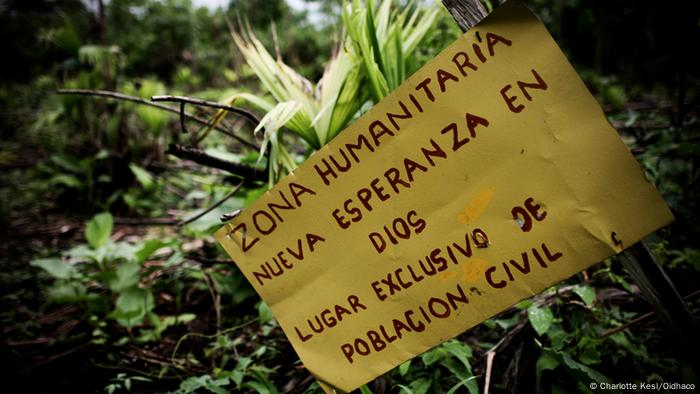 ZONA HUMANITARÍA
NUEVA ESPERANZA EN
DIOS
LUGAR EXCLUSIVO DE
POBLACION CIVIL
© Charlotte Kesl/Oidhaco